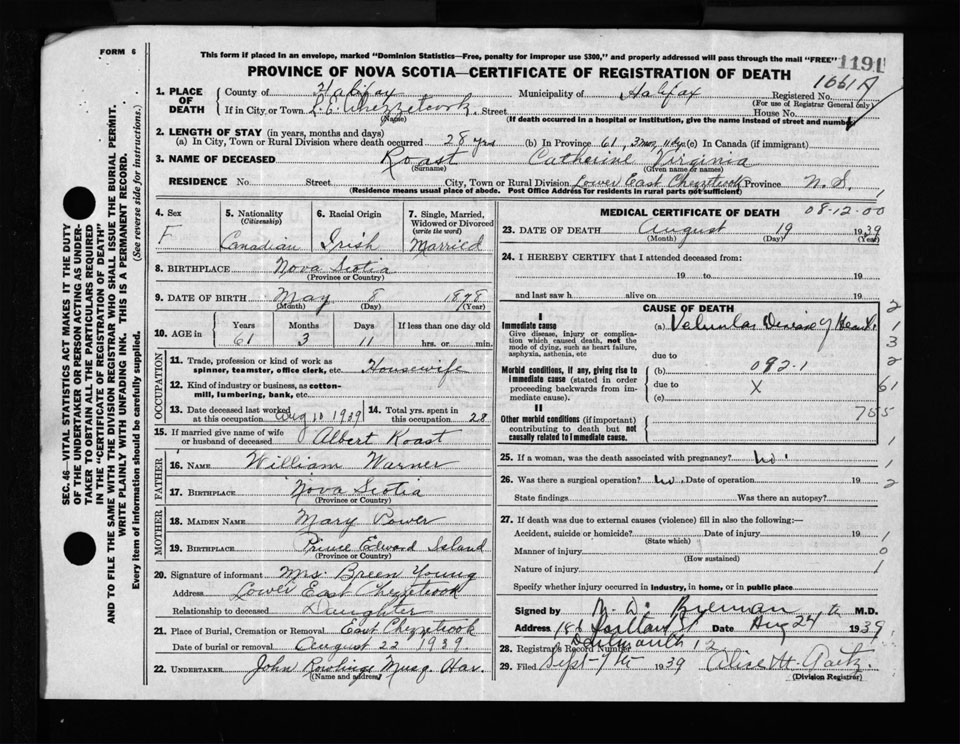 FORM 6
This form if placed in an envelope, marked "Dominion Statistics—Free, penalty for improper use $300," and properly addressed will pass through the mail "FREE"
1191
PROVINCE OF NOVA SCOTIA—CERTIFICATE OF REGISTRATION OF DEATH
1661A
1. PLACE OF DEATH
County of Halifax Municipality of Halifax Registered No.
(For use of Registrar General only)
If in City, or Town L. E. Chezzetcook, Street House No.
(Name) (If death occurred in a hospital or institution, give the name instead of street and number)
2. LENGTH OF STAY (in years, months and days)
(a) In City, Town or Rural Division where death occurred 28 yrs (b) In Province 61, 3 mos, 11 dys (c) In Canada (if immigrant)
3. NAME OF DECEASED Roast Catherine Virginia
(Surname) (Given name or names)
RESIDENCE No. Street City, Town or Rural Division Lower East Chezzetcook Province N.S.
(Residence means usual place of abode. Post Office Address for residents in rural parts not sufficient)
4. Sex F
5. Nationality (Citizenship) Canadian
6. Racial Origin Irish
7. Single, Married, Widowed or Divorced (write the word) Married
8. BIRTHPLACE Nova Scotia
(Province or Country)
9. DATE OF BIRTH May 8 1878
(Month) (Day) (Year)
10. AGE in Years Months Days If less than one day old
61 3 11 hrs. or min.
OCCUPATION
11. Trade, profession or kind of work as spinner, teamster, office clerk, etc. Housewife
12. Kind of industry or business, as cotton-mill, lumbering, bank, etc.
13. Date deceased last worked at this occupation Aug 10 1939
14. Total yrs. spent in this occupation 28
15. If married give name of wife or husband of deceased Albert Roast
FATHER
16. NAME William Warner
17. BIRTHPLACE Nova Scotia
(Province or Country)
MOTHER
18. MAIDEN NAME Mary Power
19. BIRTHPLACE Prince Edward Island
(Province or Country)
20. Signature of informant Mrs. Breen Young
Address Lower East Chezzetcook
Relationship to deceased Daughter
21. Place of Burial, Cremation or Removal East Chezzetcook
Date of burial or removal August 22 1939.
22. UNDERTAKER John Rowlings Musq. Har.
(Name and address)
MEDICAL CERTIFICATE OF DEATH 08-12-00
23. DATE OF DEATH August 19 1939
(Month) (Day) (Year)
24. I HEREBY CERTIFY that I attended deceased from:
19 to 19
and last saw h alive on 19
CAUSE OF DEATH
I
Immediate cause
Give disease, injury or complication which caused death, not the mode of dying, such as heart failure, asphyxia, asthenia, etc
(a) Valvular Disease of Heart.
due to
Morbid conditions, if any, giving rise to immediate cause (stated in order proceeding backwards from immediate cause).
(b) 092.1
due to X
(c)
II
Other morbid conditions (if important) contributing to death but not causally related to immediate cause.
25. If a woman, was the death associated with pregnancy? No.
26. Was there a surgical operation? No. Date of operation 19
State findings Was there an autopsy?
27. If death was due to external causes (violence) fill in also the following:—
Accident, suicide or homicide? Date of injury 19
(State which)
Manner of injury
(How sustained)
Nature of injury
Specify whether injury occurred in industry, in home, or in public place
Signed by M.D.
Address Dartmouth Date Aug 24th 1939
28. Registrar's Record Number 12
29. Filed Sept 7th 1939
(Division Registrar)
1
2
1
3
2
61
755
1
1
2
1
0
1
SEC. 46—VITAL STATISTICS ACT MAKES IT THE DUTY
OF THE UNDERTAKER OR PERSON ACTING AS UNDER-
TAKER TO OBTAIN ALL THE PARTICULARS REQUIRED
IN THE "CERTIFICATE OF REGISTRATION OF DEATH"
AND TO FILE THE SAME WITH THE DIVISION REGISTRAR WHO SHALL ISSUE THE BURIAL PERMIT.
WRITE PLAINLY WITH UNFADING INK. THIS IS A PERMANENT RECORD.
Every item of information should be carefully supplied. (See reverse side for instructions.)